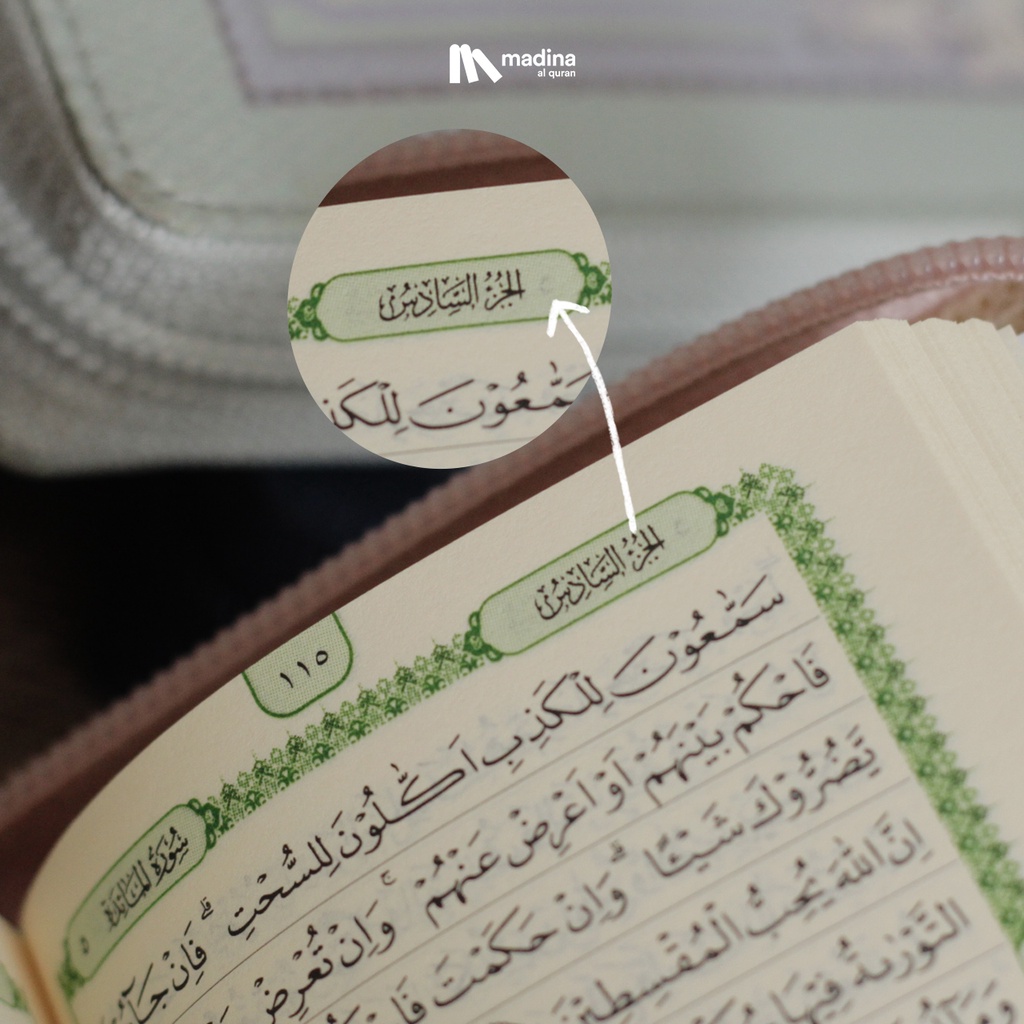 madina
al quran
الجزء السادس
سَمّٰعُوْنَ لِلْكَذِ
الجزء السادس
١١٥
سورة المائدة ٥
سَمّٰعُوْنَ لِلْكَذِبِ اَكّٰلُوْنَ لِلسُّحْتِۗ فَاِنْ جَاۤءُ
فَاحْكُمْ بَيْنَهُمْ اَوْ اَعْرِضْ عَنْهُمْ ۚ وَاِنْ تُعْرِضْ
يَّضُرُّوْكَ شَيْـًٔا ۗ وَاِنْ حَكَمْتَ فَا
اِنَّ اللّٰهَ يُحِبُّ الْمُقْسِطِيْنَ
التَّوْرٰىةُ فِيْهَا